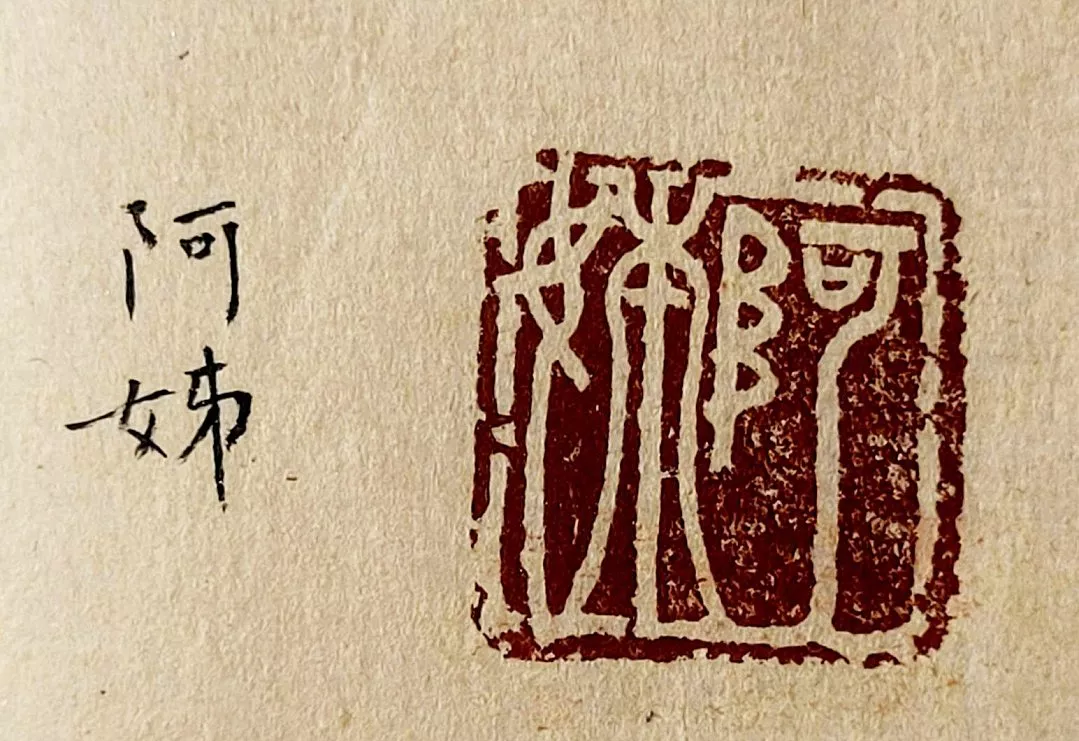 阿姊
阿姊